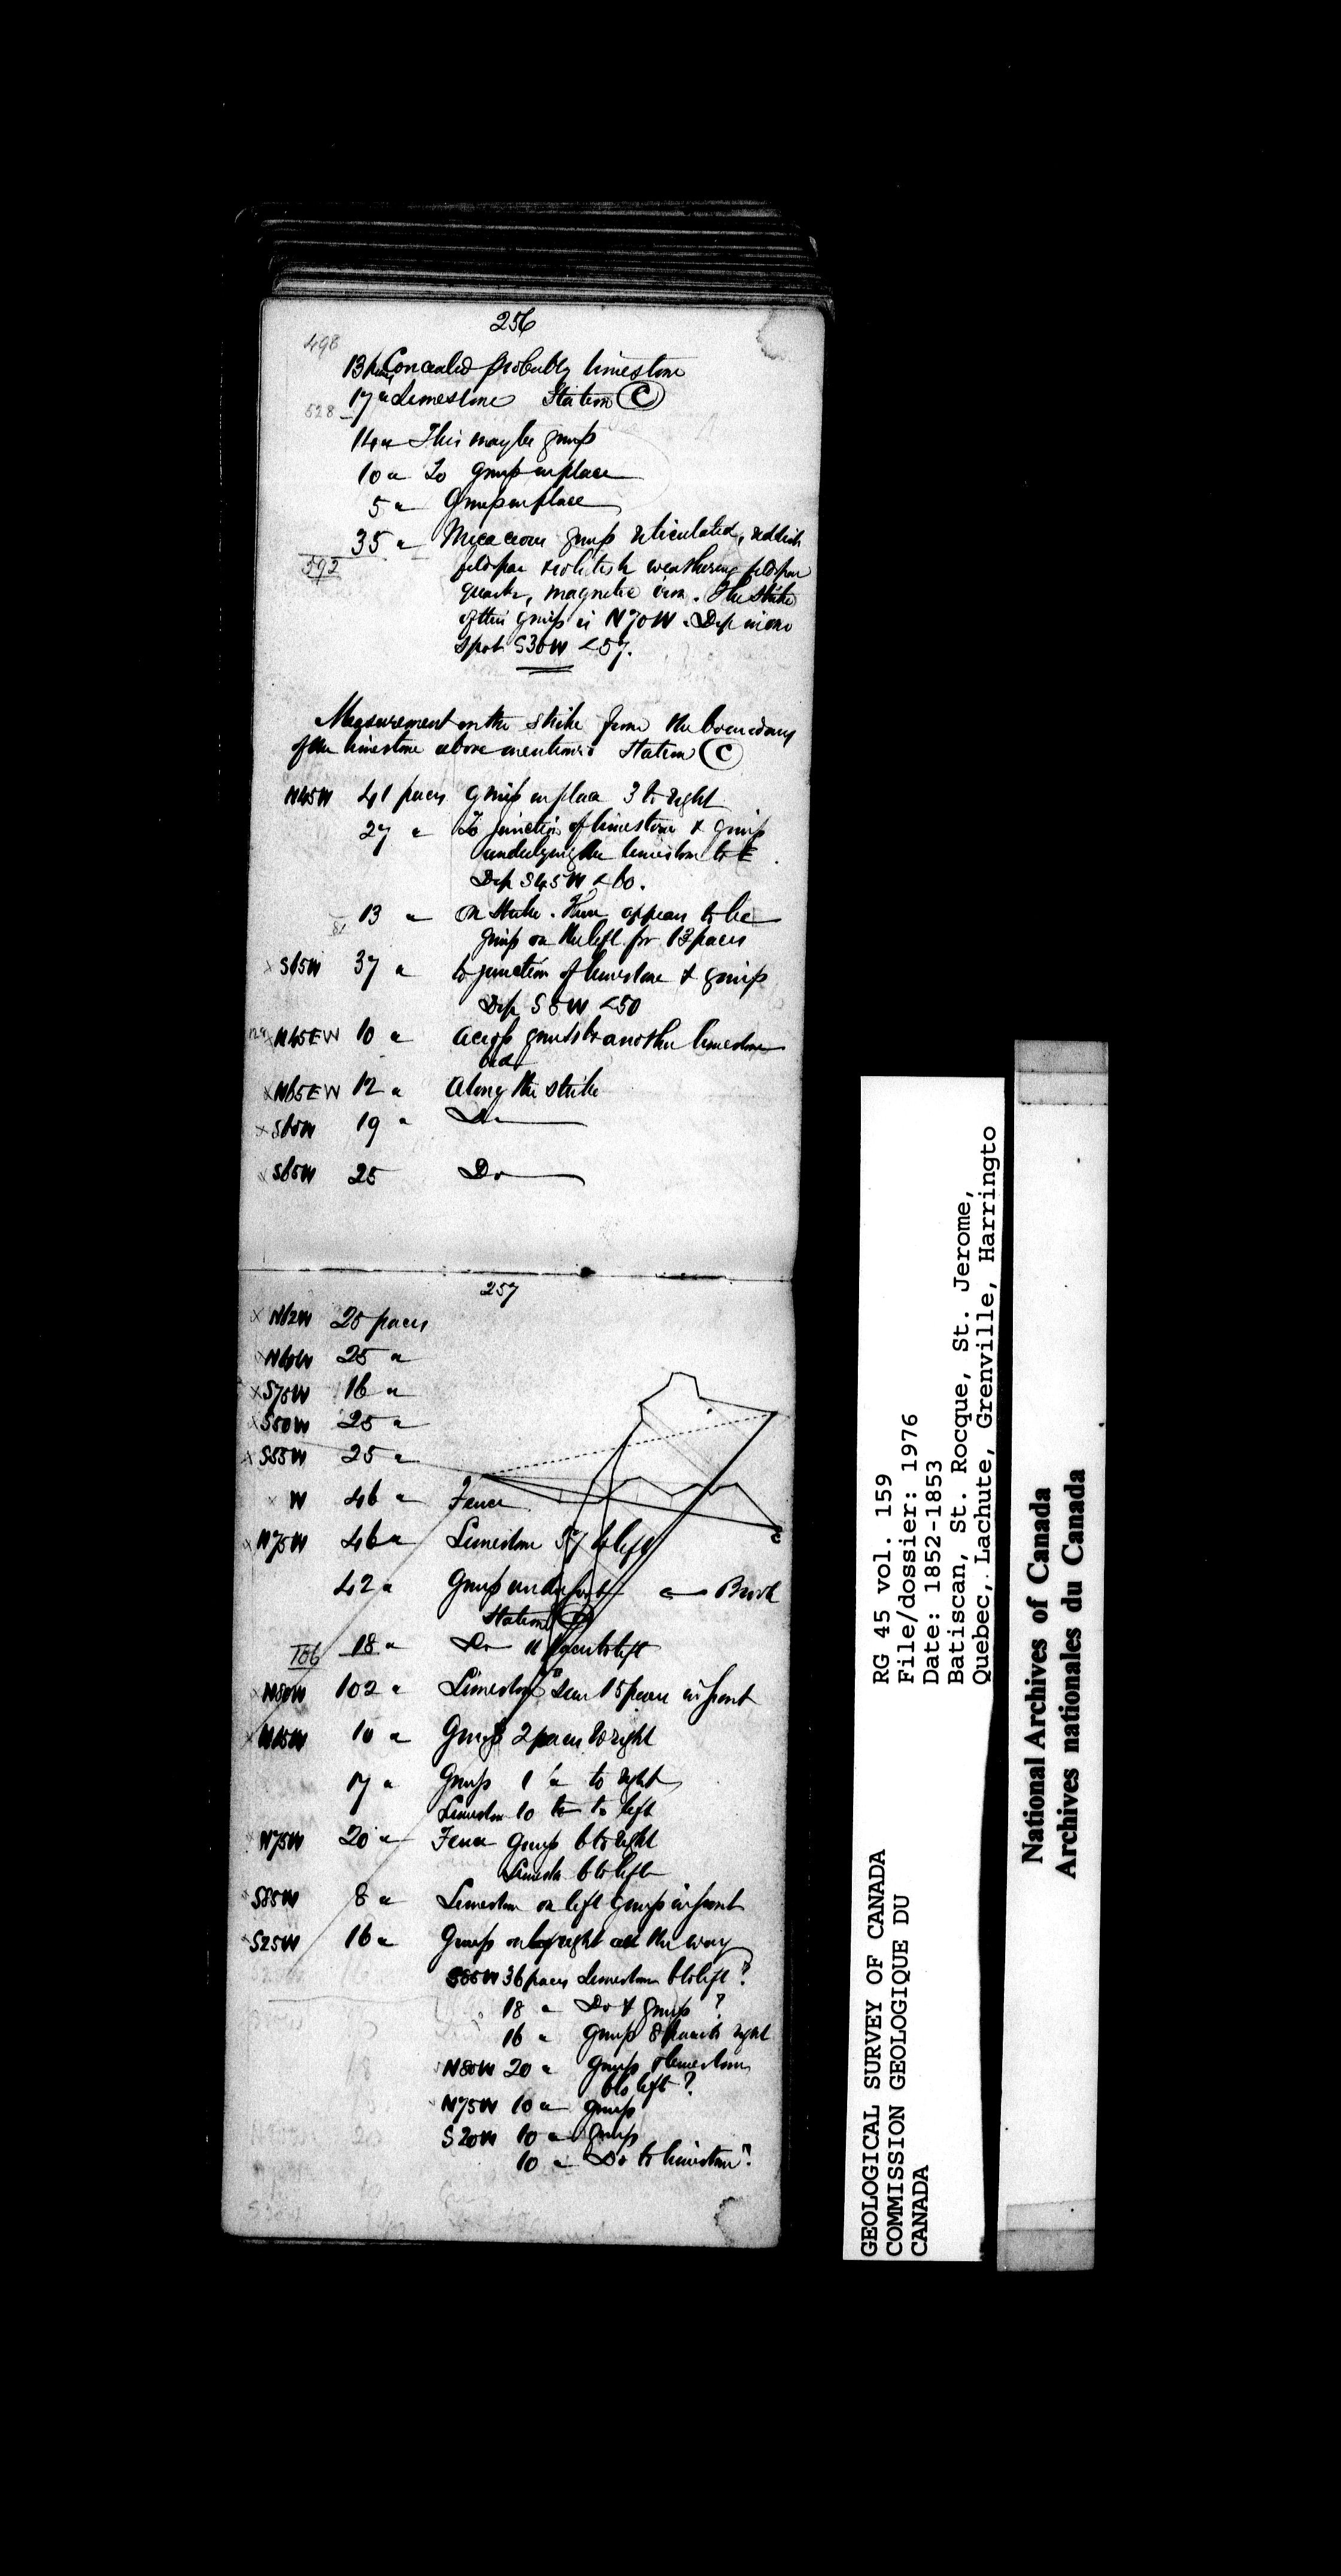 256
498
13 paces Concealed probably limestone
17 " Limestone Station C
528
14 " This may be gneiss
10 " To gneiss in place
5 " Gneiss in place
35 " Micaceous gneiss reticulated, reddish
592
feldspar whitish weathering feldspar
quartz, magnetic iron. The strike
of this gneiss is N70W. Dip in one
spot S30W <57.
Measurement on the strike from the boundary
of the limestone above mentioned Station C
N45W 41 paces gneiss in place 3 to right
27 " To junction of limestone & gneiss
underlying the limestone to E
Dip S45W <60.
13 " On strike. There appears to be
81
gneiss on the left for 13 paces
x S65W 37 " to junction of limestone & gneiss
Dip S5W <50
x N45EW 10 " across gneiss to another limestone
bed
x N65EW 12 " Along the strike
x S60W 19 " Do
x S65W 25 Do
257
x N62W 25 paces
x N60W 25 "
x S75W 16 "
x S50W 25 "
x S55W 25 "
x W 46 " Fence
x N75W 46 " Limestone 57 to left
42 " Gneiss under foot ← Brook
Station D
106 18 " Do 11 paces to left
x N80W 102 " Limestone seen 15 paces in front
x N65W 10 " Gneiss 2 paces to right
17 " Gneiss 1 " to right
Limestone 10 to left
N75W 20 " Fence Gneiss 6 to right
Limestone 6 to left
x S85W 8 " Limestone on left Gneiss in front
x S25W 16 " Gneiss on right all the way
S65W 36 paces Limestone 6 to left?
18 " Do & gneiss?
16 " Gneiss 8 paces to right
N80W 20 " Gneiss & limestone
6 to left?
N75W 10 " gneiss
S20W 10 " gneiss
10 " Do to limestone?
GEOLOGICAL SURVEY OF CANADA
COMMISSION GEOLOGIQUE DU
CANADA
RG 45 vol. 159
File/dossier: 1976
Date: 1852-1853
Batiscan, St. Rocque, St. Jerome,
Quebec, Lachute, Grenville, Harringto
National Archives of Canada
Archives nationales du Canada